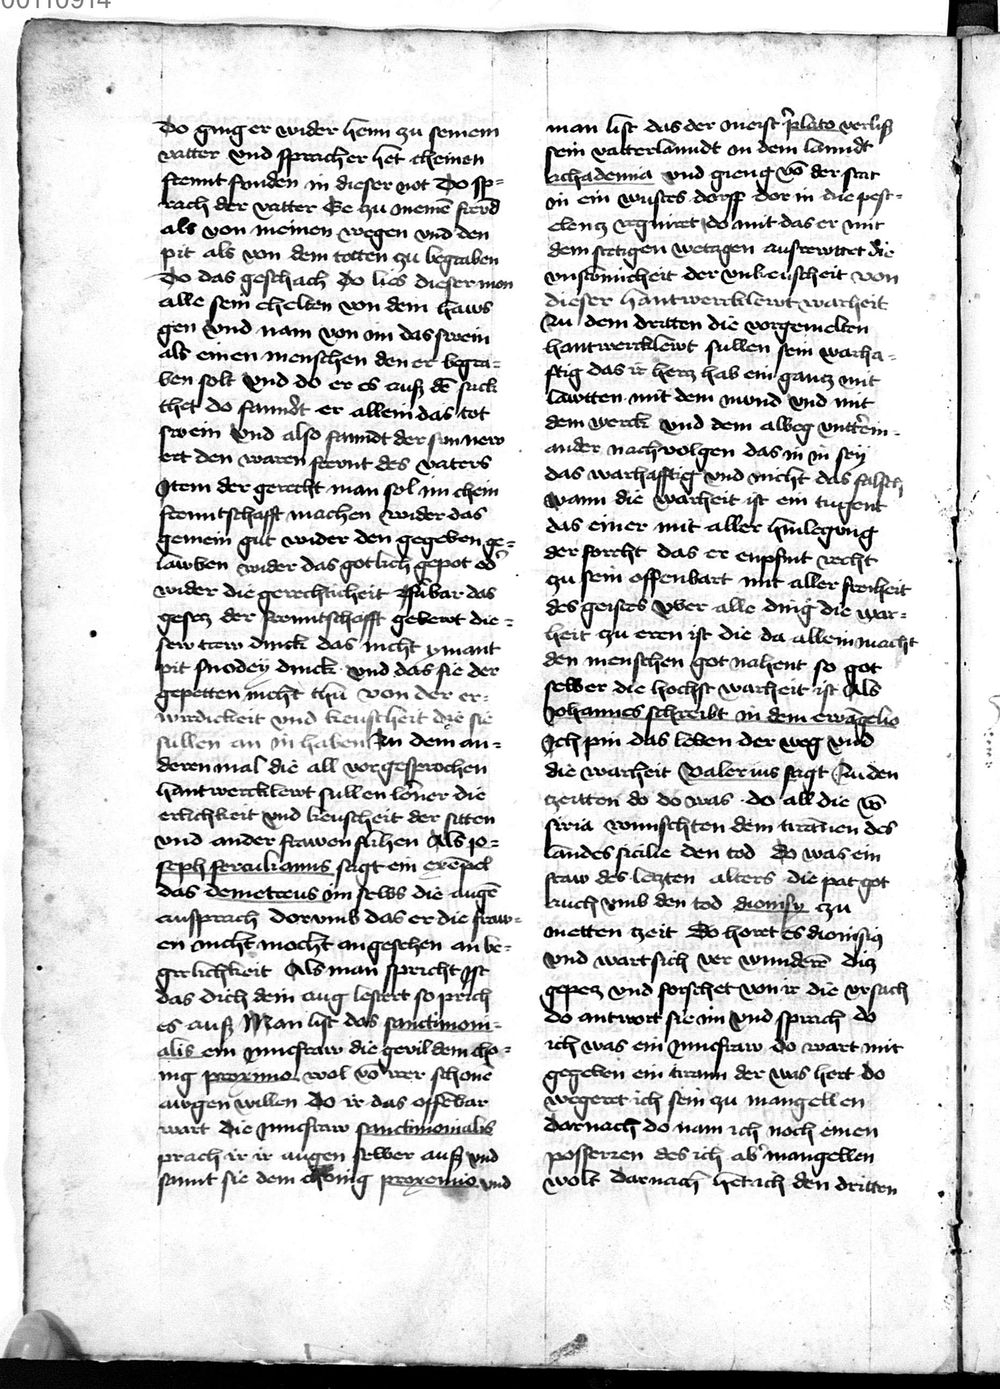 00110914
Do ging er wider heim zu seinem
vatter vnd sprach er het cheinen
frewnt funden in dieser not Do sp=
rach der vatter Ge zu meinē frewd
als von meinen wegen vnd den
pit als von dem totten zu begraben
Do das geschach Do lies dieser man
alle sein chelten von dem haws
gen vnd nam von im das swein
als einen menschen den er begra=
ben solt vnd do er es auß dē sack
thet do fandt er allein das tot
swein vnd also fandt der sun new
ert den waren frewnt des vaters
Item der gerecht man sol im chein
frewntschafft machen wider das
gemein gut wider den gegeben ge=
lawben wider das gotlich gepot od
wider die gerechticheit Fürbar das
gesecz der frewntschafft gebewt die=
sew czwei dinck das nicht ymant
pit snodey dinck vnd das sie der
gepetten nicht thu von der er=
wirdickeit vnd keuscheit die sie
sullen an in haben Zu dem an=
deren mal die all vorgesprochen
hantwercklewt sullen lernē die
erlichkeit vnd keuscheit der sitten
vnd ander frawen flihen Als jo=
seph ferculianus sagt ein exēpel
das demetreus im selbs die augē
aussprach dorvmb das er die fraw=
en nicht mocht angesehen an be=
gerlichkeit Als man spricht Ist
das dich dein aug lestert so prich
es auß Man list das sanctimoni=
alis ein junckfraw die gevil dem cho=
nig proximo wol vō irer schonē
awgen willen Do ir das offēbar
wart Die junckfraw sanctimonialis
prach ir ir augen selber auß vnd
sannt sie dem chonig proxenio vnd
man list das der meist plato verliß
sein vatterlanndt in dem lanndt
achademia vnd gieng vō der stat
in ein wustes dorff dor in die pest=
elencz regniret do mit das er mit
dem stetigen wetagen austewttet die
vnsawmicheit der vnkeuscheit von
dieser hantwercklewt warheit
Zu dem dritten die vorgemelten
hantwercklewt sullen sein warha=
ftig das ir hercz hab ein gancz mit
lawtten mit dem mund vnd mit
dem werck vnd dem alweg vnttrein=
ander nachvolgen das in in sey
das warhafftig vnd nicht das falsch
wann die warheit ist ein tugent
das einer mit aller hinlegung
der forcht das er enpfint recht
zu sein offenbart mit aller freiheit
des geistes vber alle ding die war=
heit zu eren ist die da allein macht
den menschen got nahent so got
selber die hochst warheit ist Als
Johannes schreibt in dem ewāgelio
Ich pin das leben der weg vnd
die warheit Valerius sagt Zu den
czeitten do do was do all die vō
siria wunschten dem tirannen des
landes sicilie den tod Do was ein
fraw des leczten alters die pat got
auch vmb den tod dionisy zu
metten zeit Do horet es dionisiq
vnd wart sich ver wunderē dicz
gepecz vnd forschet von ir die vrsach
do antwort sie im vnd sprach do
ich was ein junckfraw do wart mir
gegeben ein tirann der was hert do
wegeret ich sein zu mangellen
darnach do nam ich noch einen
posserren des ich ab mangellen
wolt Darnach het ich den dritten